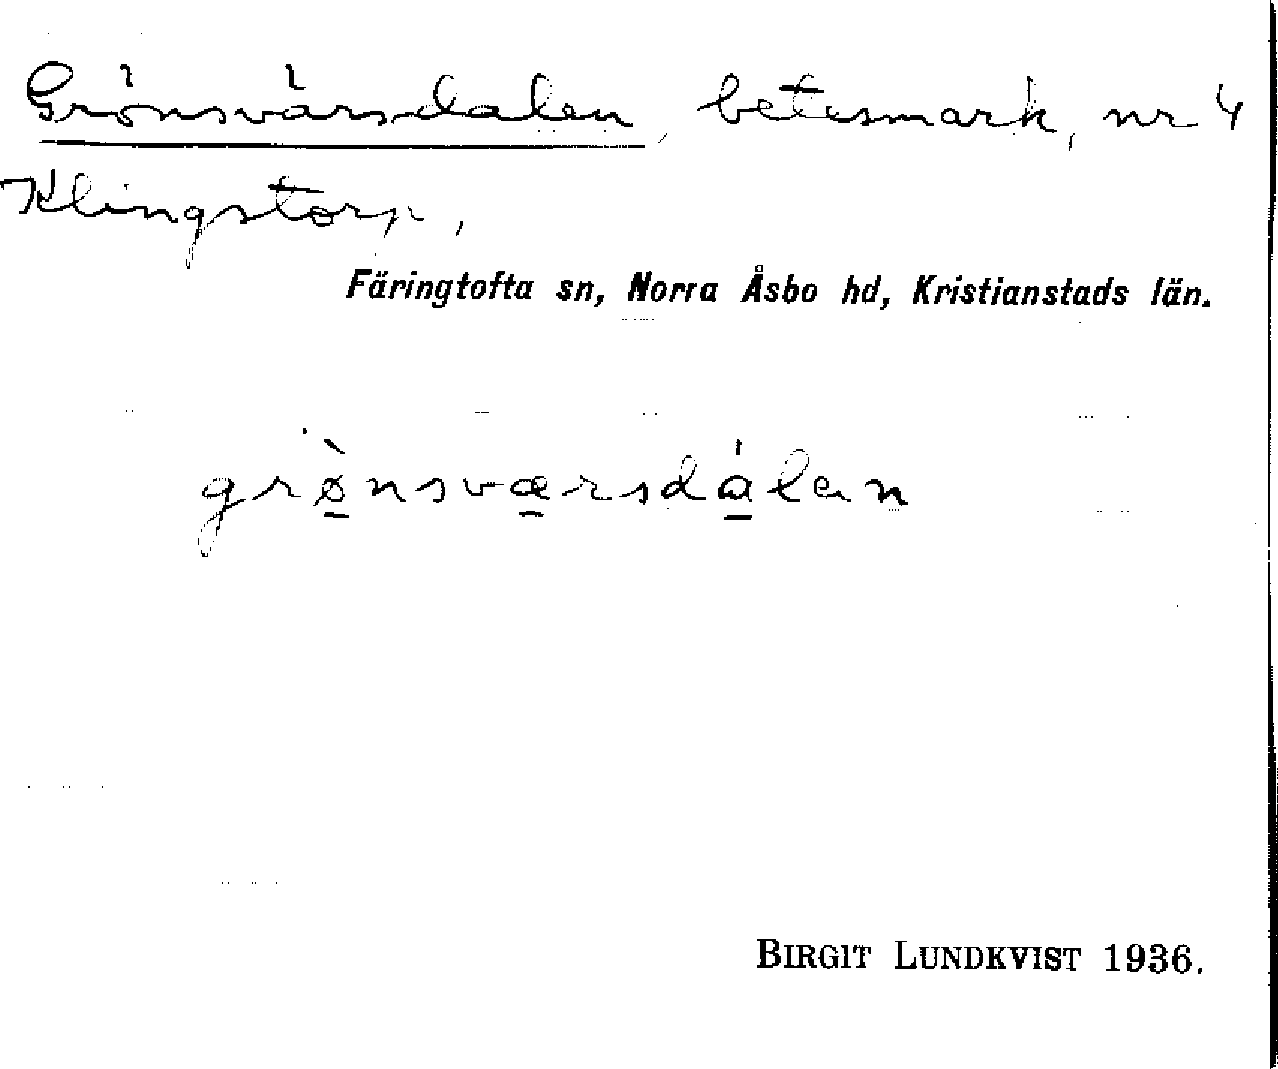 Grönsvärsdalen, betesmark, nr 4
Klingstorp,
Färingtofta sn, Norra Åsbo hd, Kristianstads län.
grø̀nsværsdálen
BIRGIT LUNDKVIST 1936.